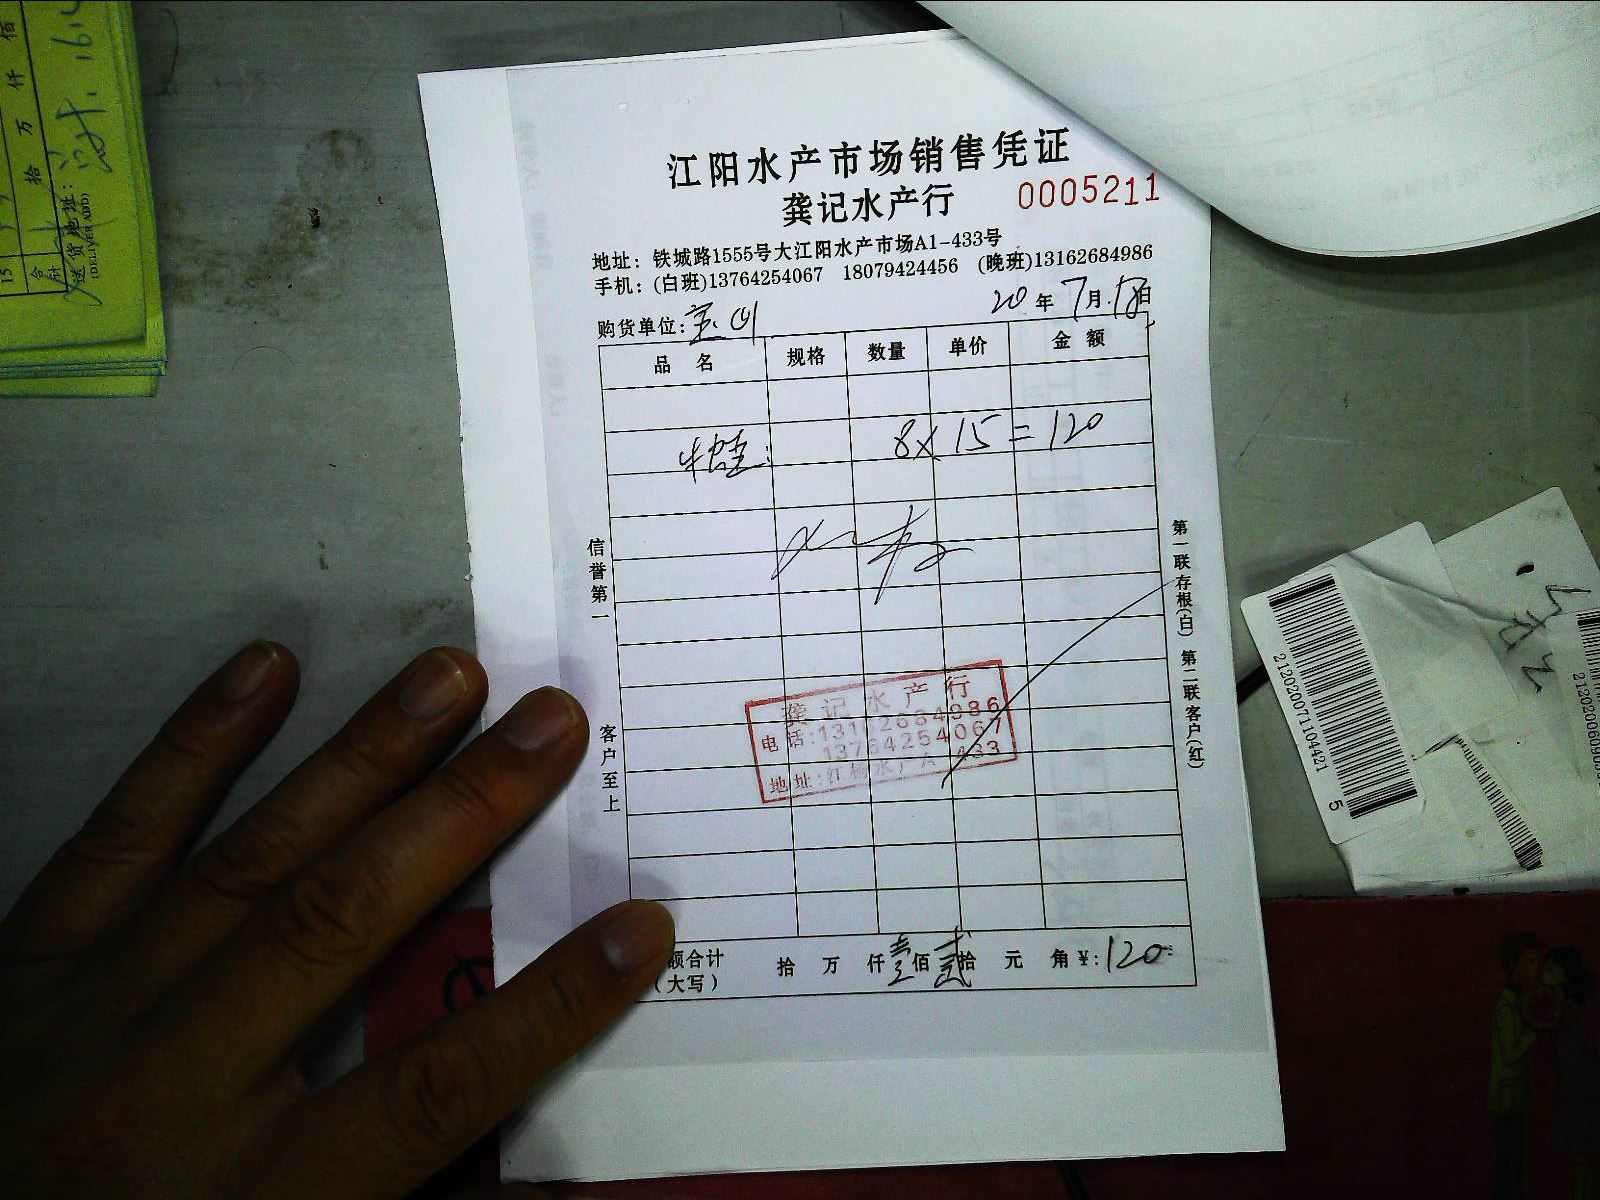 江阳水产市场销售凭证
龚记水产行 0005211
地址：铁城路1555号大江阳水产市场A1-433号
手机：(白班)13764254067 18079424456 (晚班)13162684986
购货单位： 20年7月18日
品名 规格 数量 单价 金额
牛蛙： 8×15=120
信誉第一
客户至上
第一联存根(白) 第二联客户(红)
龚记水产行
电话:13162684986
13764254067
地址:江杨水产A 433
额合计 拾 万 仟壹佰贰拾 元 角 ¥:120
（大写）
佰
仟
万
拾
合计
15
送货地址：
(DELIVER ADD)
2120200711044215